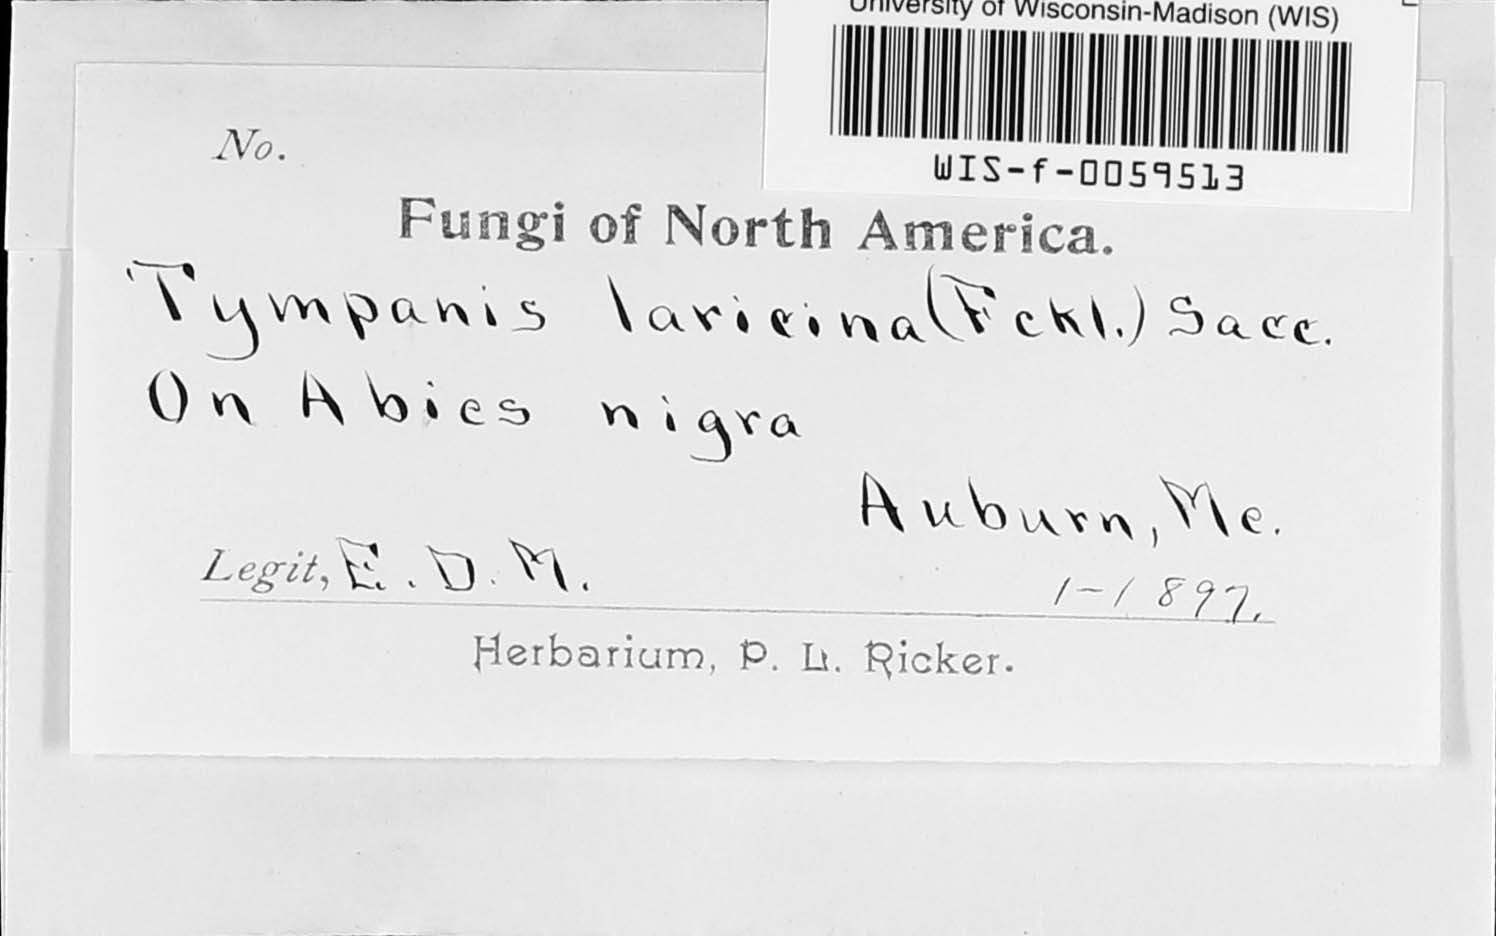 University of Wisconsin-Madison (WIS)
WIS-f-0059513
No.
Fungi of North America.
Tympanis laricina (Fckl.) Sacc.
On Abies nigra
Auburn, Me.
Legit, E. D. M.
1-1897.
Herbarium, P. L. Ricker.